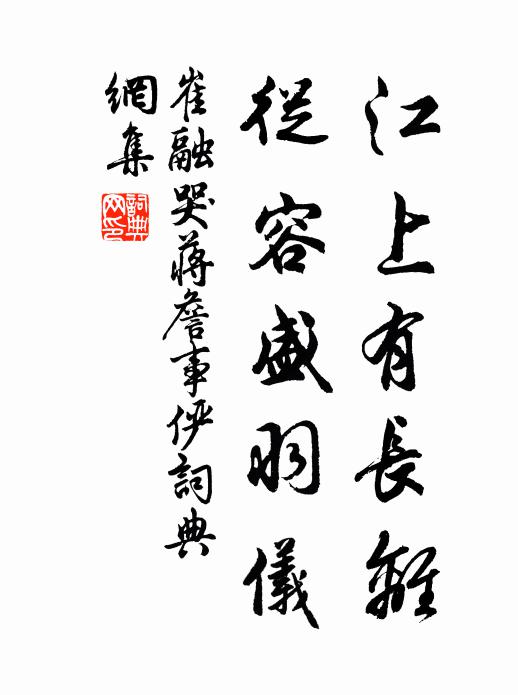 江上有長離
從容盛羽儀
崔融哭蔣詹事儼詞典
網集
詞典
网印